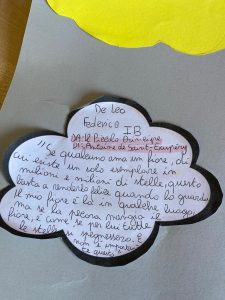 De Leo
Federico IB
DA: Il Piccolo Principe
DI: Antoine de Saint-Exupéry
"Se qualcuno ama un fiore, di
cui esiste un solo esemplare in
milioni e milioni di stelle, questo
basta a renderlo felice quando lo guarda
Il mio fiore è là in qualche luogo,
ma se la pecora mangia il
fiore, è come se per lui tutte
le stelle si spegnessero. E
non è importante
questo